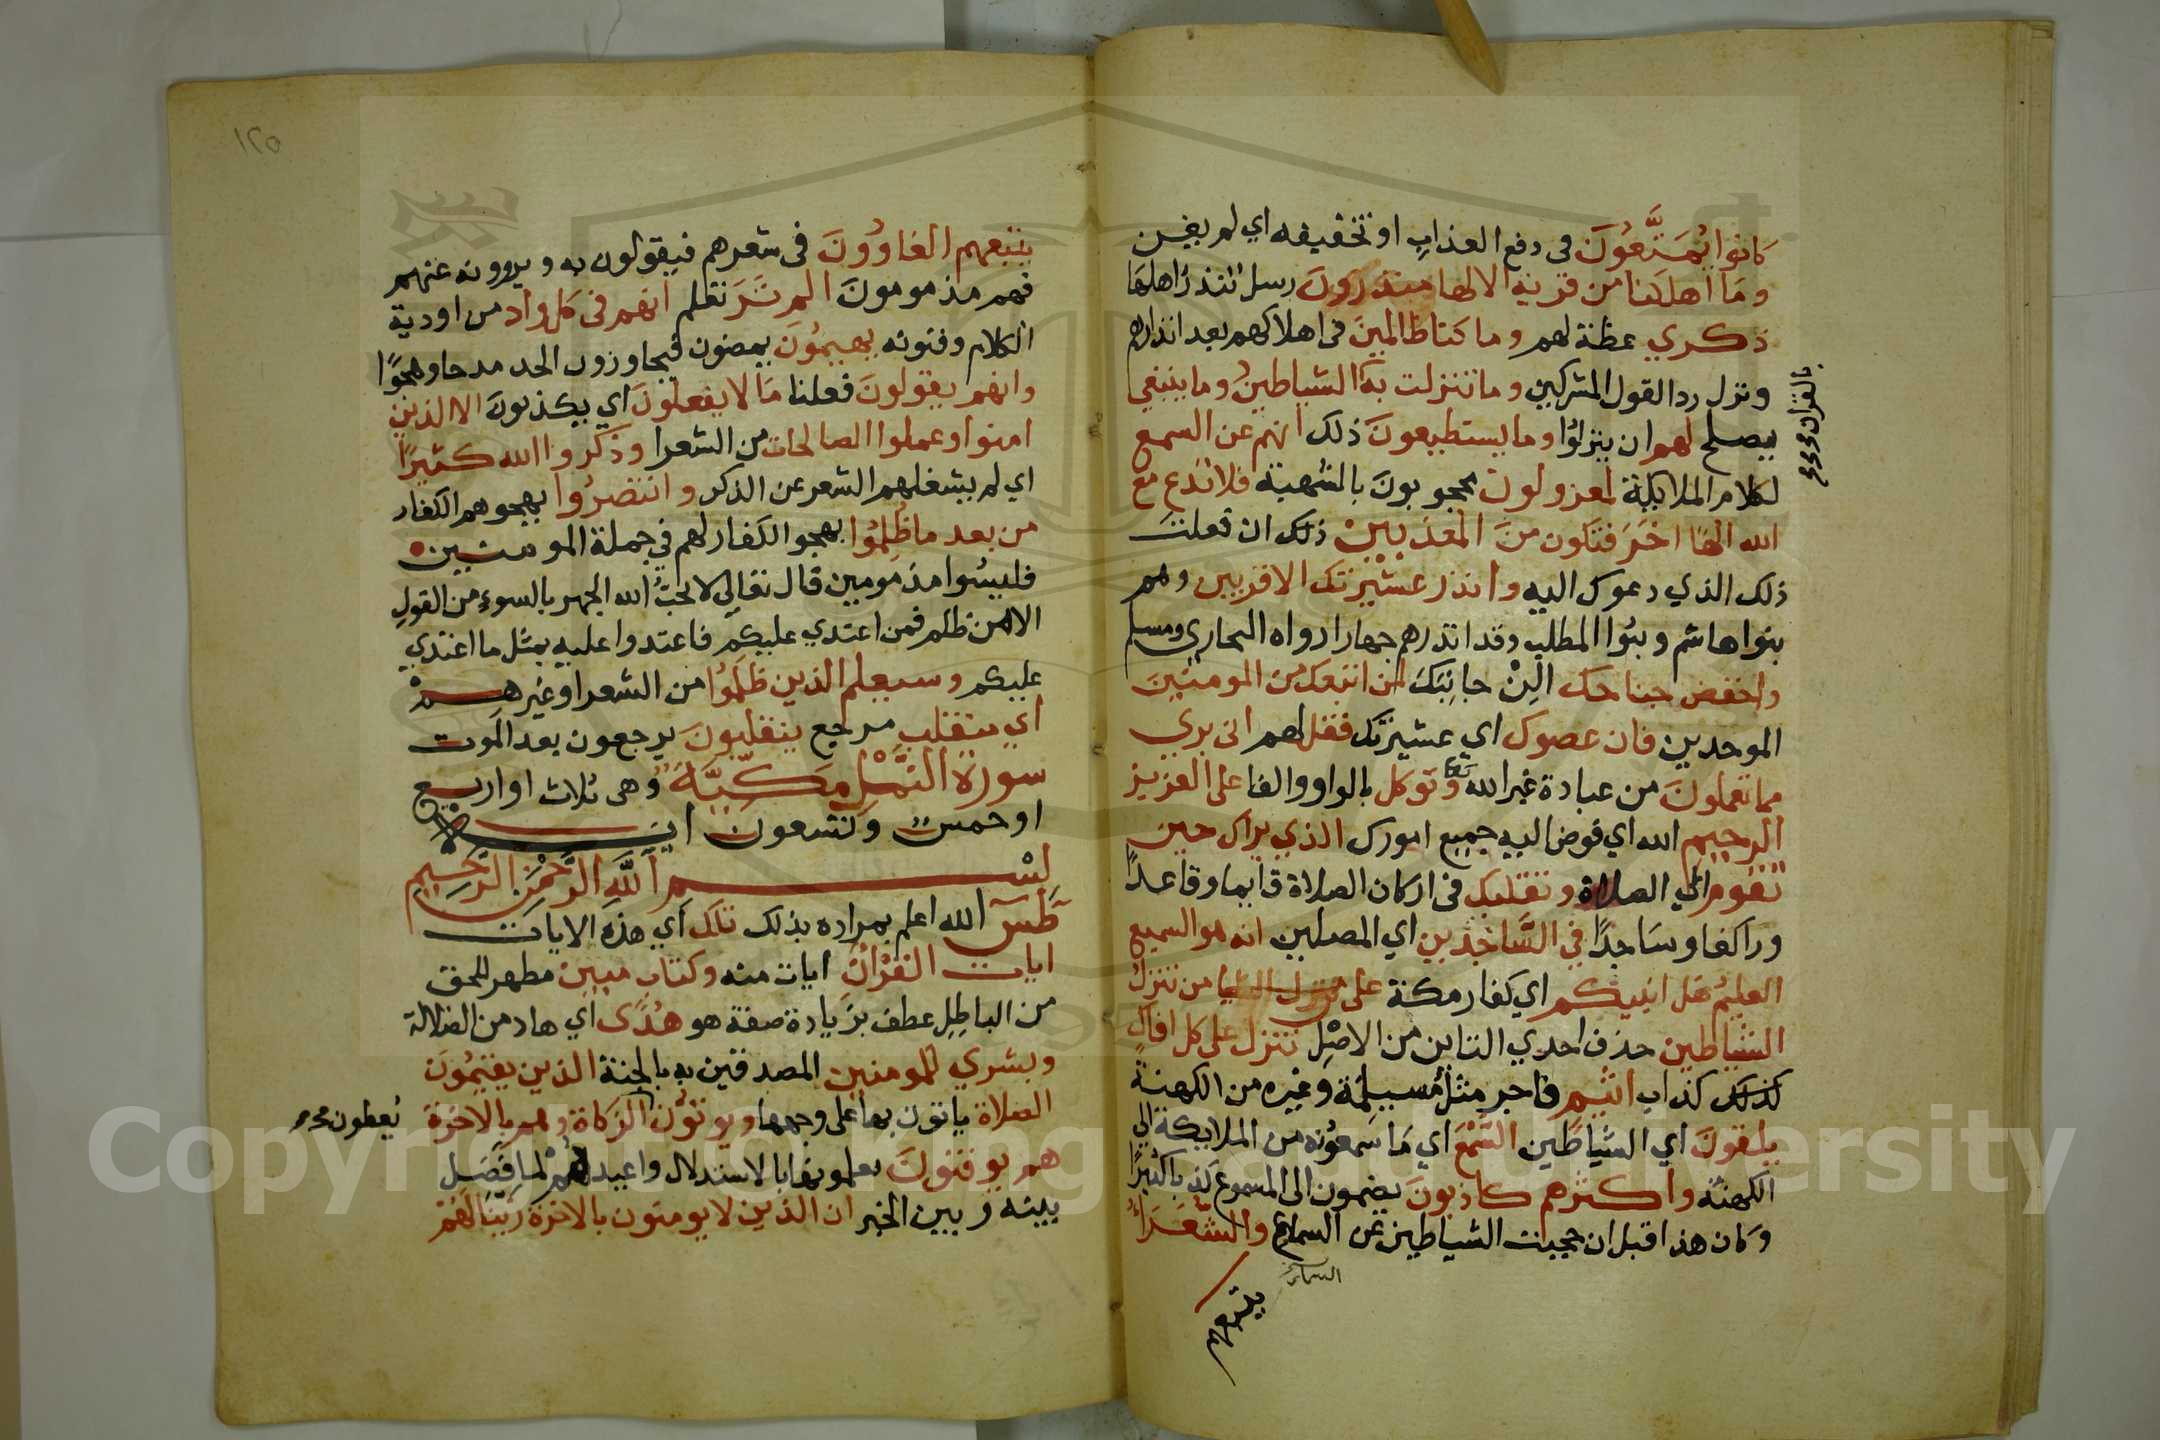 كانوا يُمَتَّعُونَ في دفع العذاب او تخفيفه اي لم يغن
وَمَا اهلكنا من قرية الا لها منذرون رسل تنذر اهلها
ذكري عظة لهم وما كنا ظالمين في اهلاكهم بعد انذارهم
ونزل ردا لقول المشركين وما تنزلت به الشياطين وما ينبغي
يصلح لهم ان ينزلوا وما يستطيعون ذلك انهم عن السمع
لكلام الملايكة لمعزولون محجوبون بالشهبة فلا تدع مع
الله الها اخر فتكون من المعذبين ذلك ان فعلت
ذلك الذي دعوك اليه وانذر عشيرتك الاقربين وهم
بنوا هاشم وبنوا المطلب وقد انذرهم جهارا رواه البخاري ومسلم
واخفض جناحك اَلِنْ جانبك لمن اتبعك من المومنين
الموحدين فان عصوك اي عشيرتك فقل لهم اني بري
مما تعملون من عبادة غير الله وتوكل بالواو والفا على العزيز
الرحيم الله اي فوض اليه جميع امورك الذي يراك حين
تقوم الي الصلاة وتقلبك في اركان الصلاة قايما وقاعدًا
وراكعا وساجدًا في الساجدين اي المصلين انه هو السميع
العليم هل انبيكم اي كفار مكة على من تنزل
الشياطين حذف احدي التاين من الاصل تنزل على كل افاك
كذلك كذاب اثيم فاجر مثل مُسيلمة وغيره من الكهنة
يلقون اي الشياطين السمع اي مَا سَمعوُه من الملايكة الي
الكهنة واكثرهم كاذبون يضمون الى المسموع كذبا كثيرًا
وكان هذا قبل ان حجبت الشياطين عن السماع والشُّعَرَاءُ
السماء
يتبعهم
بالقران
١٢٥
يتبعهم الغاوُونَ في شعرهم فيقولون به ويروونه عنهم
فهم مذمومون الم تَرَ تعلم انهم في كل واد من اودية
الكلام وفنونه يهيمُونَ يمضون فيجاوزون الحد مدحا وهجوًا
وانهم يقولون فعلنا مَا لا يفعلون اي يكذبون الا الذين
امنوا وعملوا الصالحات من الشعرا وذكروا الله كثيرًا
اي لم يشغلهم الشعر عن الذكر وانتصرُوا بهجوهم الكفار
من بعد ما ظلموُا بهجو الكفار لهم في جملة المومنين
فليسُوا مذمومين قال تعالي لا يحبُّ الله الجهر بالسوءِ من القول
الا من ظلم فمن اعتدي عليكم فاعتدوا عليه بمثل ما اعتدي
عليكم وسيعلم الذين ظلموُا من الشعرا وغيرهم
اي منقلب مرجع ينقلبون يرجعون بعد الموت
سورة النَّمْلِ مَكِّيَّةٌ وهي ثلاث او اربع
او خمس وتسعون اية
بسم اللَّهِ الرَّحمَنِ الرَّحِيمِ
طَسَ الله اعلم بمراده بذلك تلك اي هذه الايات
ايات القرْانِ ايات منه وكتاب مبين مظهر للحق
من الباطِلِ عطف بزيادة صفة هو هُدًى اي هاد من الضلالة
وبشري للمومنين المصدقين به بالجنة الذين يقيمُونَ
الصلاة ياتون بها على وجهها ويوتوُن الزكاة وهم بالاخرة
يُعطون
هم يوقنون يعلمونها بالاستدلال واعيد هُمْ لما فَصَل
بينه وبين الخبر ان الذين لا يومنون بالاخرة زَيَّنَّا لهم